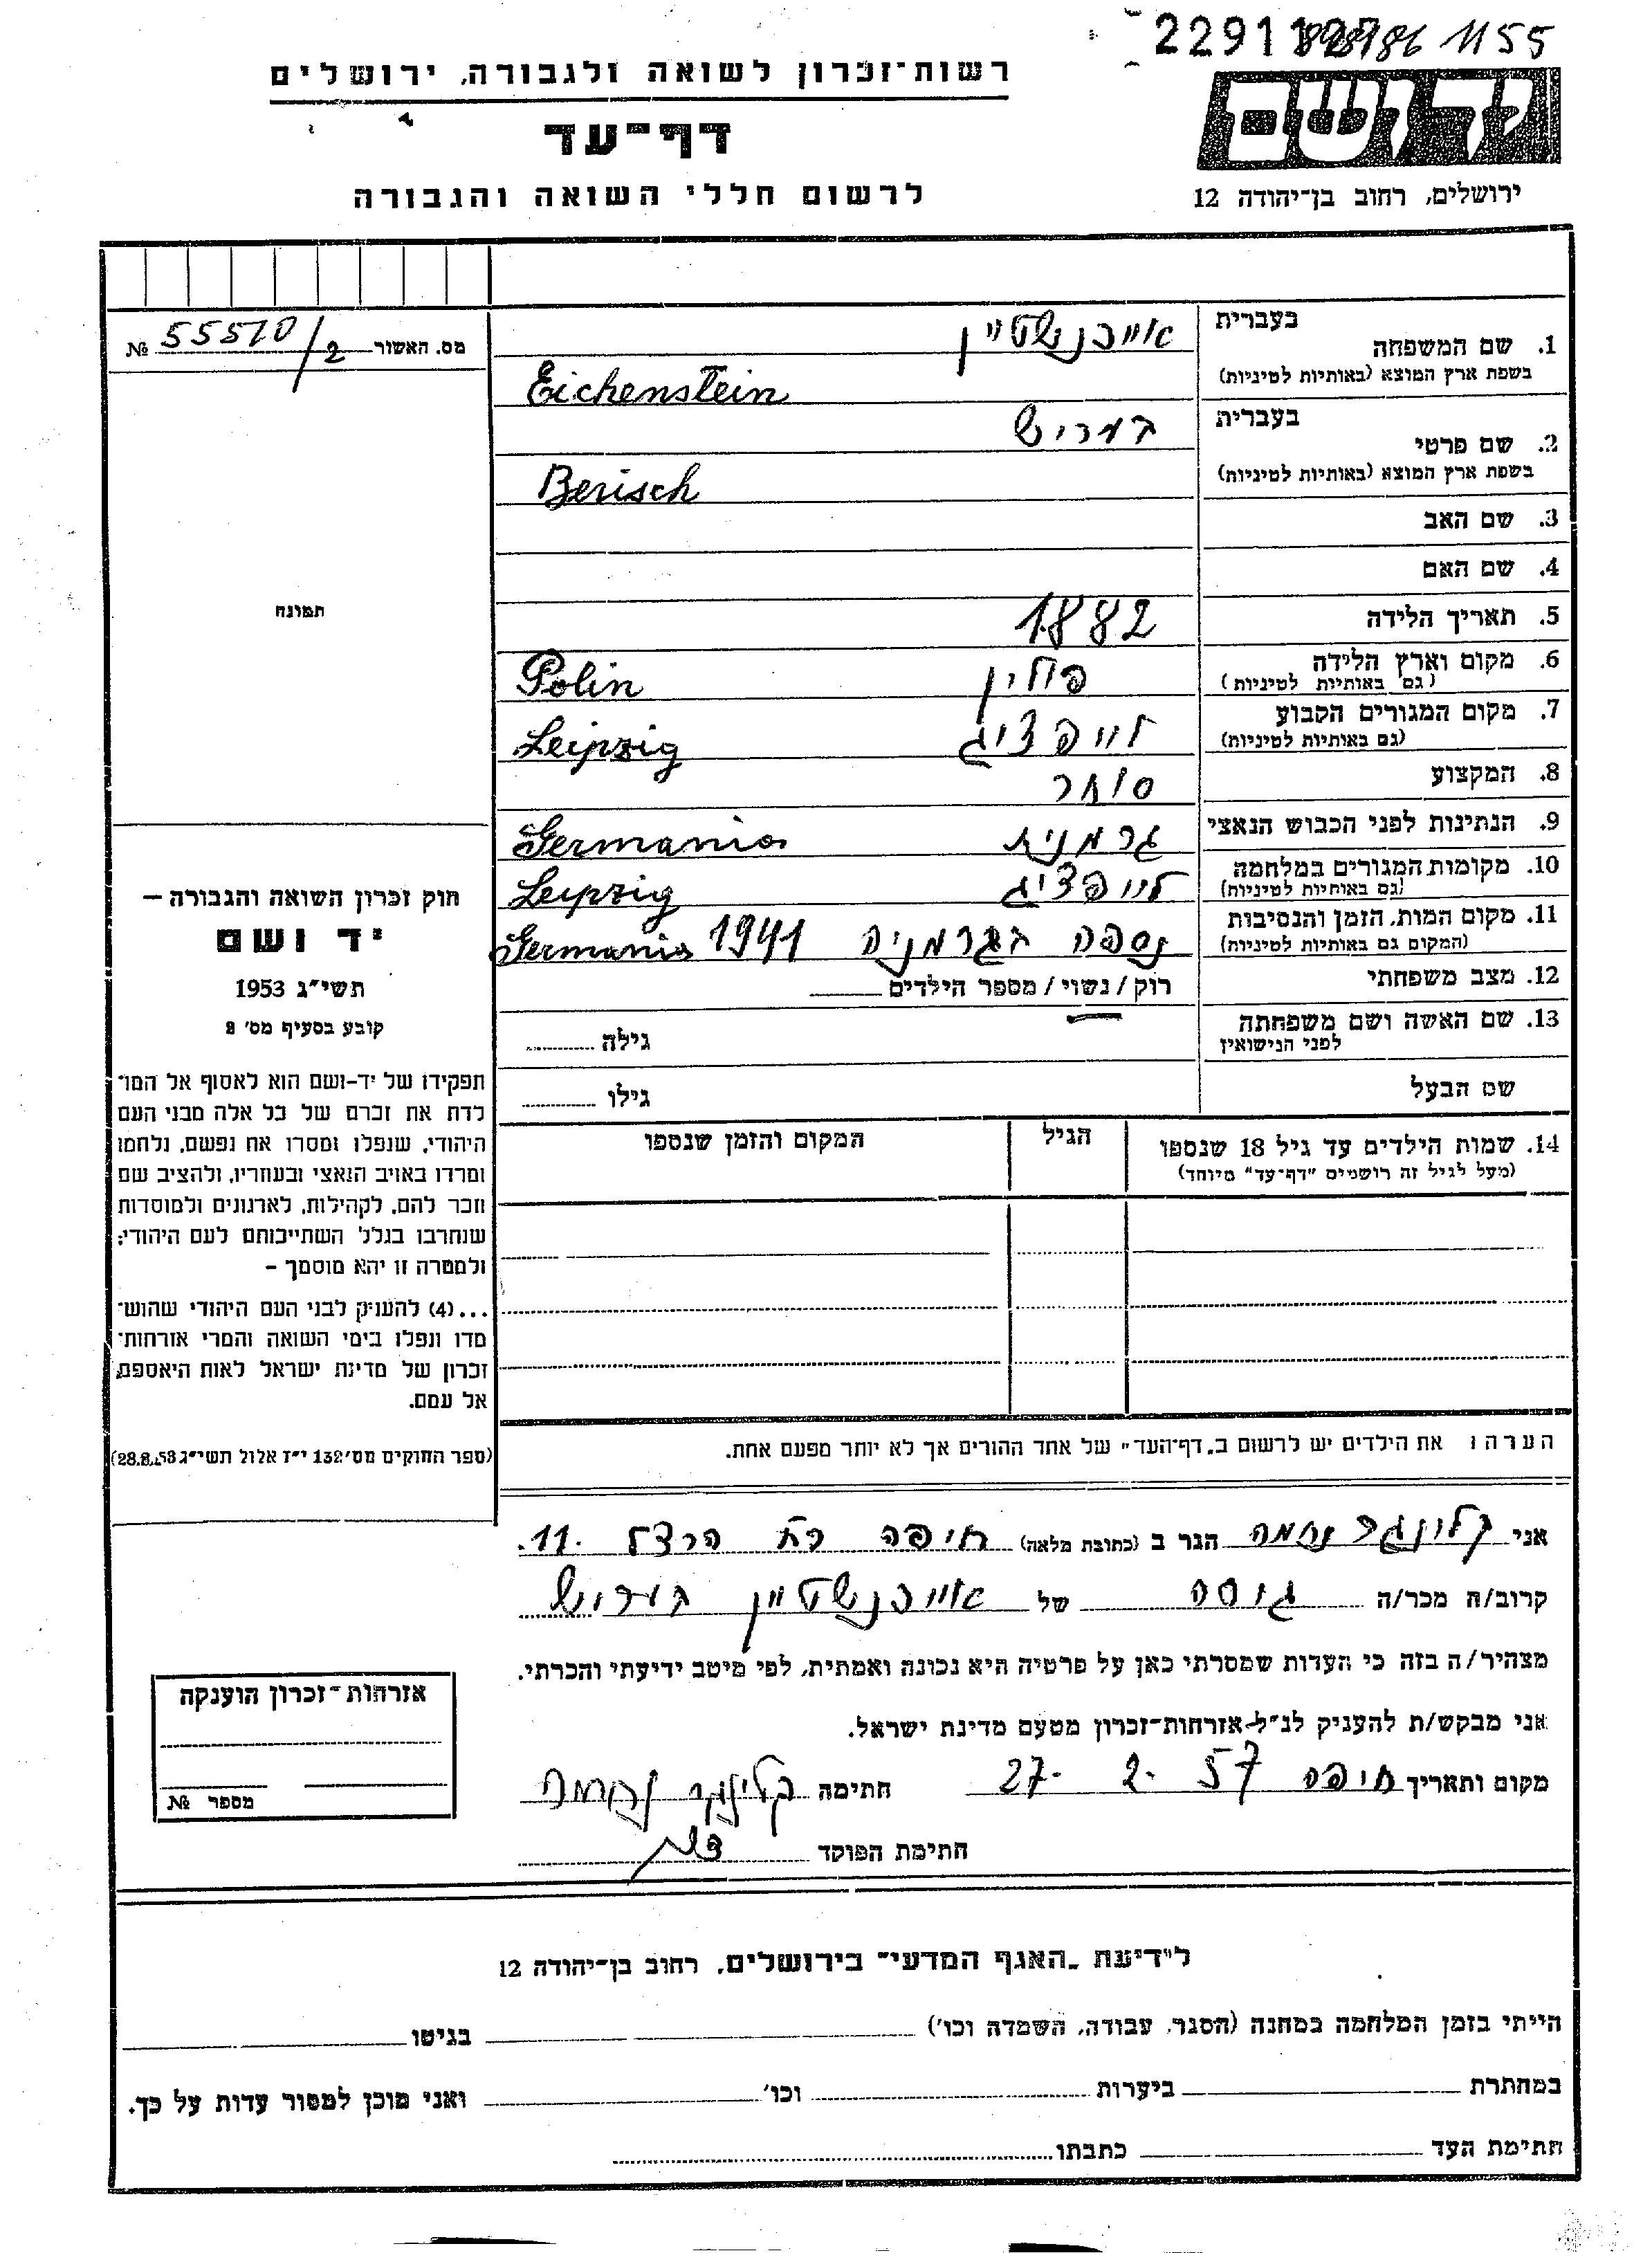 1155
רשות־זכרון לשואה ולגבורה, ירושלים
ידושם
דף־עד
לרשום חללי השואה והגבורה
ירושלים, רחוב בן־יהודה 12
מס. האשור № 55570/2
תמונה
חוק זכרון השואה והגבורה —
יד ושם
תשי״ג 1953
קובע בסעיף מס׳ 8
תפקידו של יד-ושם הוא לאסוף אל המו־
לדת את זכרם של כל אלה מבני העם
היהודי, שנפלו ומסרו את נפשם, נלחמו
ומרדו באויב הנאצי ובעוזריו, ולהציב שם
וזכר להם, לקהילות, לארגונים ולמוסדות
שנחרבו בגלל השתייכותם לעם היהודי;
ולמטרה זו יהא מוסמך —
...(4) להעניק לבני העם היהודי שהוש־
מדו ונפלו בימי השואה והמרי אזרחות־
זכרון של מדינת ישראל לאות היאספם
אל עמם.
(ספר החוקים מס׳ 132 י״ז אלול תשי״ג 28.8.53)
בעברית
1. שם המשפחה אייכנשטיין
בשפת ארץ המוצא (באותיות לטיניות) Eichenstein
בעברית
2. שם פרטי בריש
בשפת ארץ המוצא (באותיות לטיניות) Berisch
3. שם האב
4. שם האם
5. תאריך הלידה 1882
6. מקום וארץ הלידה פולין Polin
(גם באותיות לטיניות)
7. מקום המגורים הקבוע לייפציג Leipzig
(גם באותיות לטיניות)
8. המקצוע סוחר
9. הנתינות לפני הכבוש הנאצי גרמנית Germania
10. מקומות המגורים במלחמה לייפציג Leipzig
(גם באותיות לטיניות)
11. מקום המות, הזמן והנסיבות נספה בגרמניה 1941 Germania
(המקום גם באותיות לטיניות)
12. מצב משפחתי רוק / נשוי / מספר הילדים
13. שם האשה ושם משפחתה גילה
לפני הנישואין
שם הבעל גילו
14. שמות הילדים עד גיל 18 שנספו הגיל המקום והזמן שנספו
(מעל לגיל זה רושמים "דף־עד" מיוחד)
הערה: את הילדים יש לרשום ב„דף־העד" של אחד ההורים אך לא יותר מפעם אחת.
אני קלינגר נחמה הגר ב (כתובת מלאה) חיפה רח הרצל 11.
קרוב/ה מכר/ה גיסה של אייכנשטיין בריש
מצהיר/ה בזה כי העדות שמסרתי כאן על פרטיה היא נכונה ואמתית, לפי מיטב ידיעתי והכרתי.
אני מבקש/ת להעניק לנ״ל אזרחות־זכרון מטעם מדינת ישראל.
מקום ותאריך חיפה 27. 2. 57 חתימה קלינגר נחמה
חתימת הפוקד
אזרחות־זכרון הוענקה
מספר №
לידיעת „האגף המדעי" בירושלים, רחוב בן־יהודה 12
הייתי בזמן המלחמה במחנה (הסגר, עבודה, השמדה וכו׳) בגיטו
במחתרת ביערות וכו׳ ואני מוכן למסור עדות על כך.
חתימת העד כתבתו